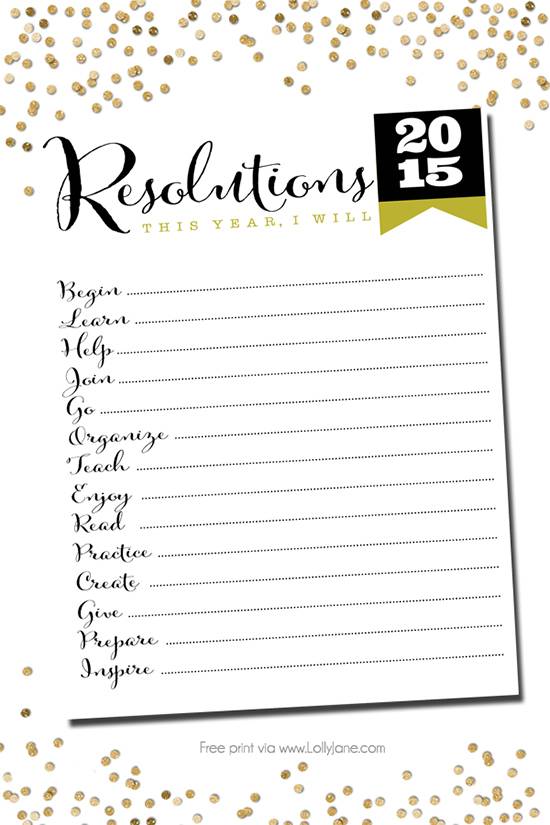 Resolutions
20
15
THIS YEAR, I WILL
Begin
Learn
Help
Join
Go
Organize
Teach
Enjoy
Read
Practice
Create
Give
Prepare
Inspire
Free print via www.LollyJane.com